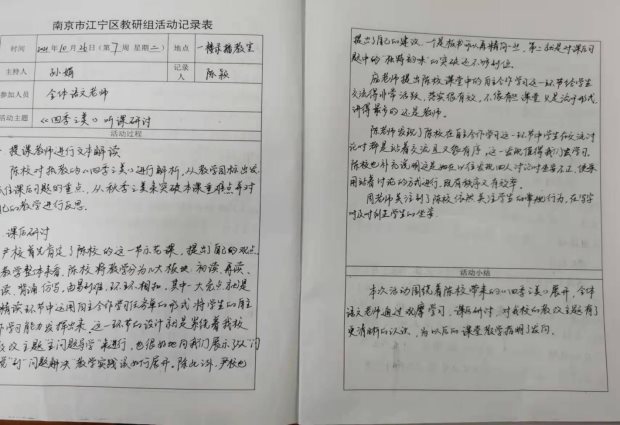 南京市江宁区教研组活动记录表
时间 2021年10月26日(第7周 星期二) 地点 一楼录播教室
主持人 孙娟 记录人 陈颖
参加人员 全体语文老师
活动主题 《四季之美》听课研讨
活动过程
授课老师进行文本解读
陈校对执教的《四季之美》进行解析,从教学目标出发,
住课后习题的重点,从秋季之美来突破本课重难点并对
己的教学进行反思.
课后研讨
尹校首先肯定了陈校的这一节示范课,提出了自己的观点.
教学整体来看,陈校将教学分为几大板块:初读、再读、
读、背诵仿写,由易到难、环环相扣,其中一大亮点就是
精读环节中运用自主合作学习任务单的形式,将学生的自主
学习能力发挥出来,这一环节的设计就是紧绕着我校
改主题"主问题导学"来进行,也很好地向我们展示了以"问
"研"问题解决"教学实践该如何展开。除此之外,尹校也
提出了自己的建议,一个是板书可以再精简一些,第二就是对课后习
题中的"独特韵味"的突破还不够到位.
老师提出陈校课堂中的自主合作学习这一环节给学生
交流得非常活跃,落实很有效,不像有些课堂只是流于形式,
讲得最多的还是老师.
陈老师发现了陈校在自主合作学习这一环节中学生在交流讨
论时都是站着交流且又很有序,这一发现值得我们去学习.
陈校也补充说明这是她在以往发现四人讨论时坐着不正,便采
用站着讨论的方式进行,既有秩序又有效率.
周老师关注到了陈校依然关注学生的常规行为,在写字
时及时纠正学生的坐姿.
活动小结
本次活动围绕着陈校带来的《四季之美》展开,全体
语文老师通过观摩学习、课后研讨,对我校的教改主题有了
更清晰的认识,为以后的课堂教学指明了方向.